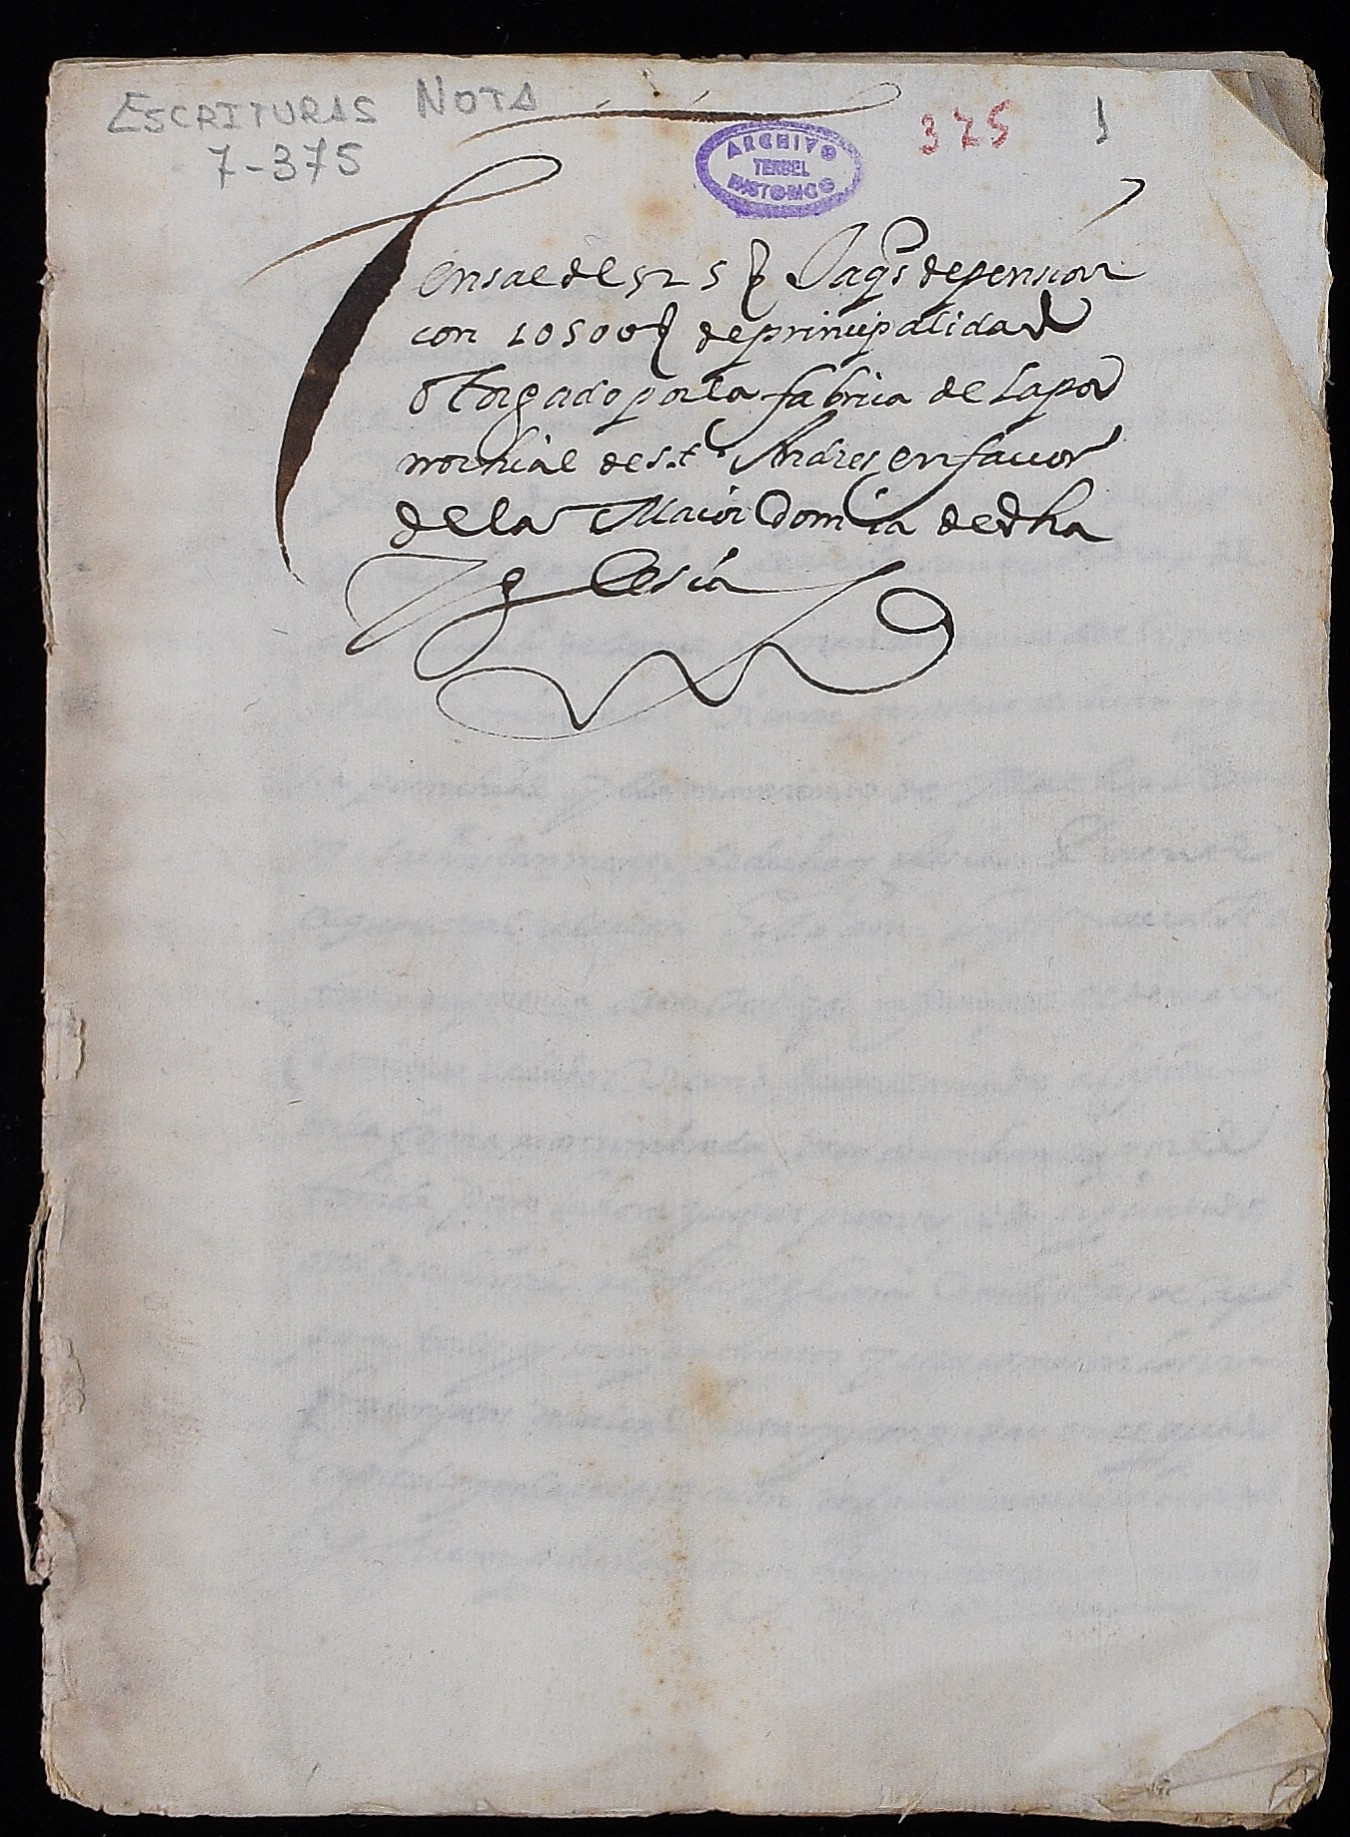 ESCRITURAS NOTA
7-375
375 1
ARCHIVO
TERUEL
HISTORICO
Censal de 525 ſ Jaqs de pension
con 10500 ſ de principalidad
otorgado por la fabrica de la par
rrochial de st Andres en fauor
de la Maior Domia de dha
Yglesia